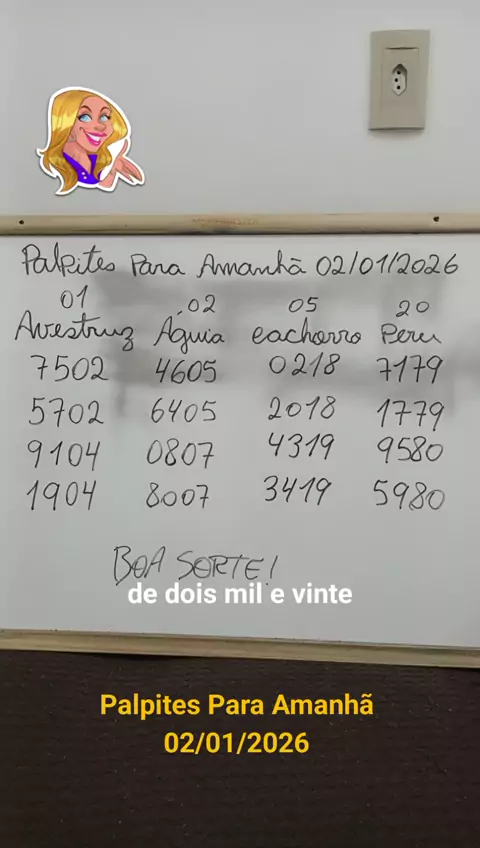 Palpites Para Amanhã 02/01/2026
01 02 05 20
Avestruz Águia cachorro Peru
7502 4605 0218 7179
5702 6405 2018 1779
9104 0807 4319 9580
1904 8007 3419 5980
BOA SORTE!
de dois mil e vinte
Palpites Para Amanhã
02/01/2026